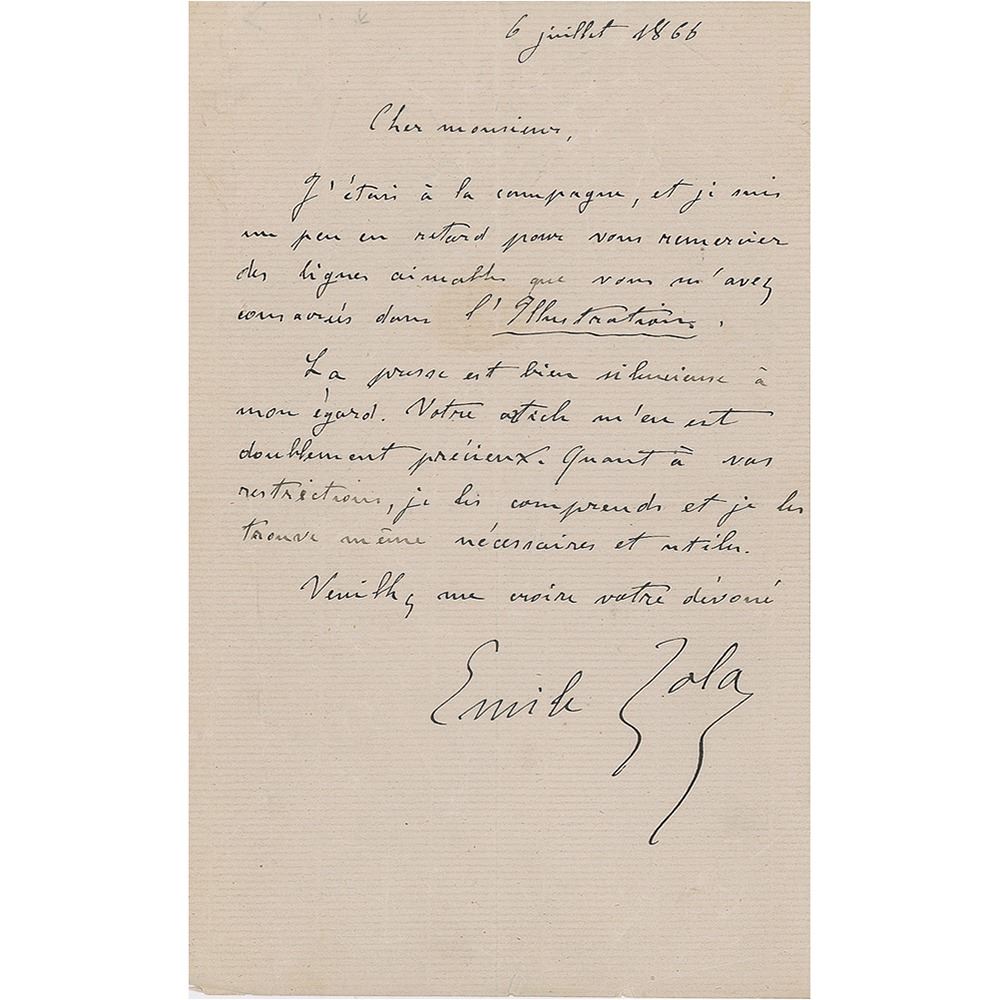 6 juillet 1866
Cher monsieur,
J'étais à la campagne, et je suis
un peu en retard pour vous remercier
des lignes aimables que vous m'avez
consacrées dans l'Illustration.
La presse est bien silencieuse à
mon égard. Votre article m'en est
doublement précieux. Quant à vos
restrictions, je les comprends et je les
trouve même nécessaires et utiles.
Veuillez me croire votre dévoué
Emile Zola